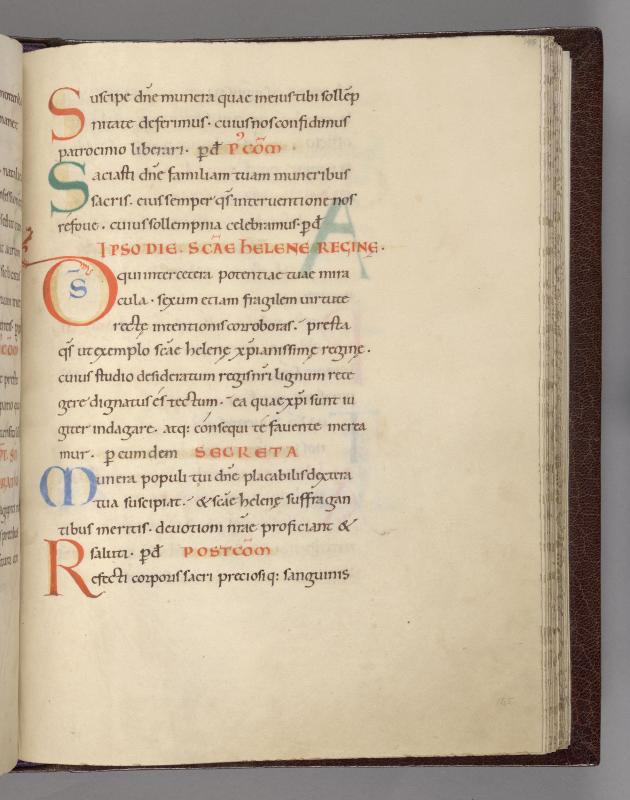 Suscipe dn̄e munera quae ineius tibi sollēp
nitate deferimus · cuius nos confidimus
patrocinio liberari · p̄d P' COM̄ ·
Saciasti dn̄e familiam tuam muneribus
sacris · eius semper qs̄ interventione nos
refove · cuius sollempnia celebramus · p̄d
IPSO DIE · SC̄AE HELENE REGINĘ ·
Om̄s D̄S qui inter cetera potentiae tuae mira
cula · sexum etiam fragilem virtute
rectę intentionis corroboras · presta
qs̄ ut exemplo sc̄ae helenę xp̄ianissimę reginę ·
cuius studio desideratum regis nr̄i lignum rete
gere dignatus es · ea quae xp̄i sunt iu
giter indagare · atq: consequi te favente merea
mur · p eumdem SECRETA
Munera populi tui dn̄e placabilis dextera
tua suscipiat · & sc̄ae helenę suffragan
tibus meritis · devotioni nr̄ae proficiant &
saluti · p̄d POSTCOM̄
Refecti corporis sacri preciosiq: sanguinis
165